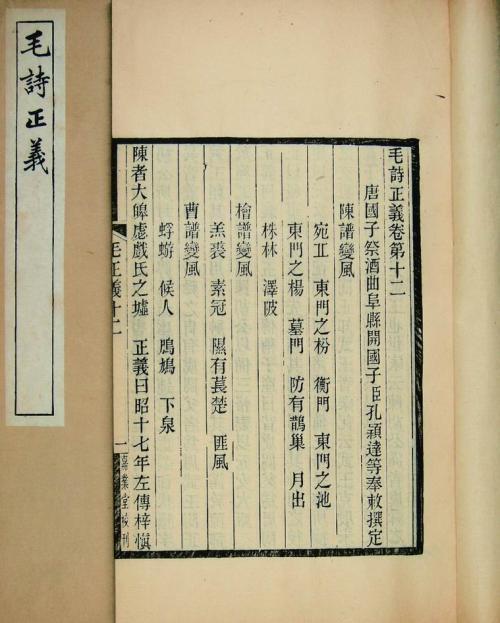 毛詩正義
毛詩正義卷第十二
唐國子祭酒曲阜縣開國子臣孔穎達等奉敕撰定
陳譜變風
宛丘 東門之枌 衡門 東門之池
東門之楊 墓門 防有鵲巢 月出
株林 澤陂
檜譜變風
羔裘 素冠 隰有萇楚 匪風
曹譜變風
蜉蝣 候人 鳲鳩 下泉
陳者大皡虙戲氏之墟 正義曰昭十七年左傳梓愼
毛正義十二
一
嘉業堂校刊